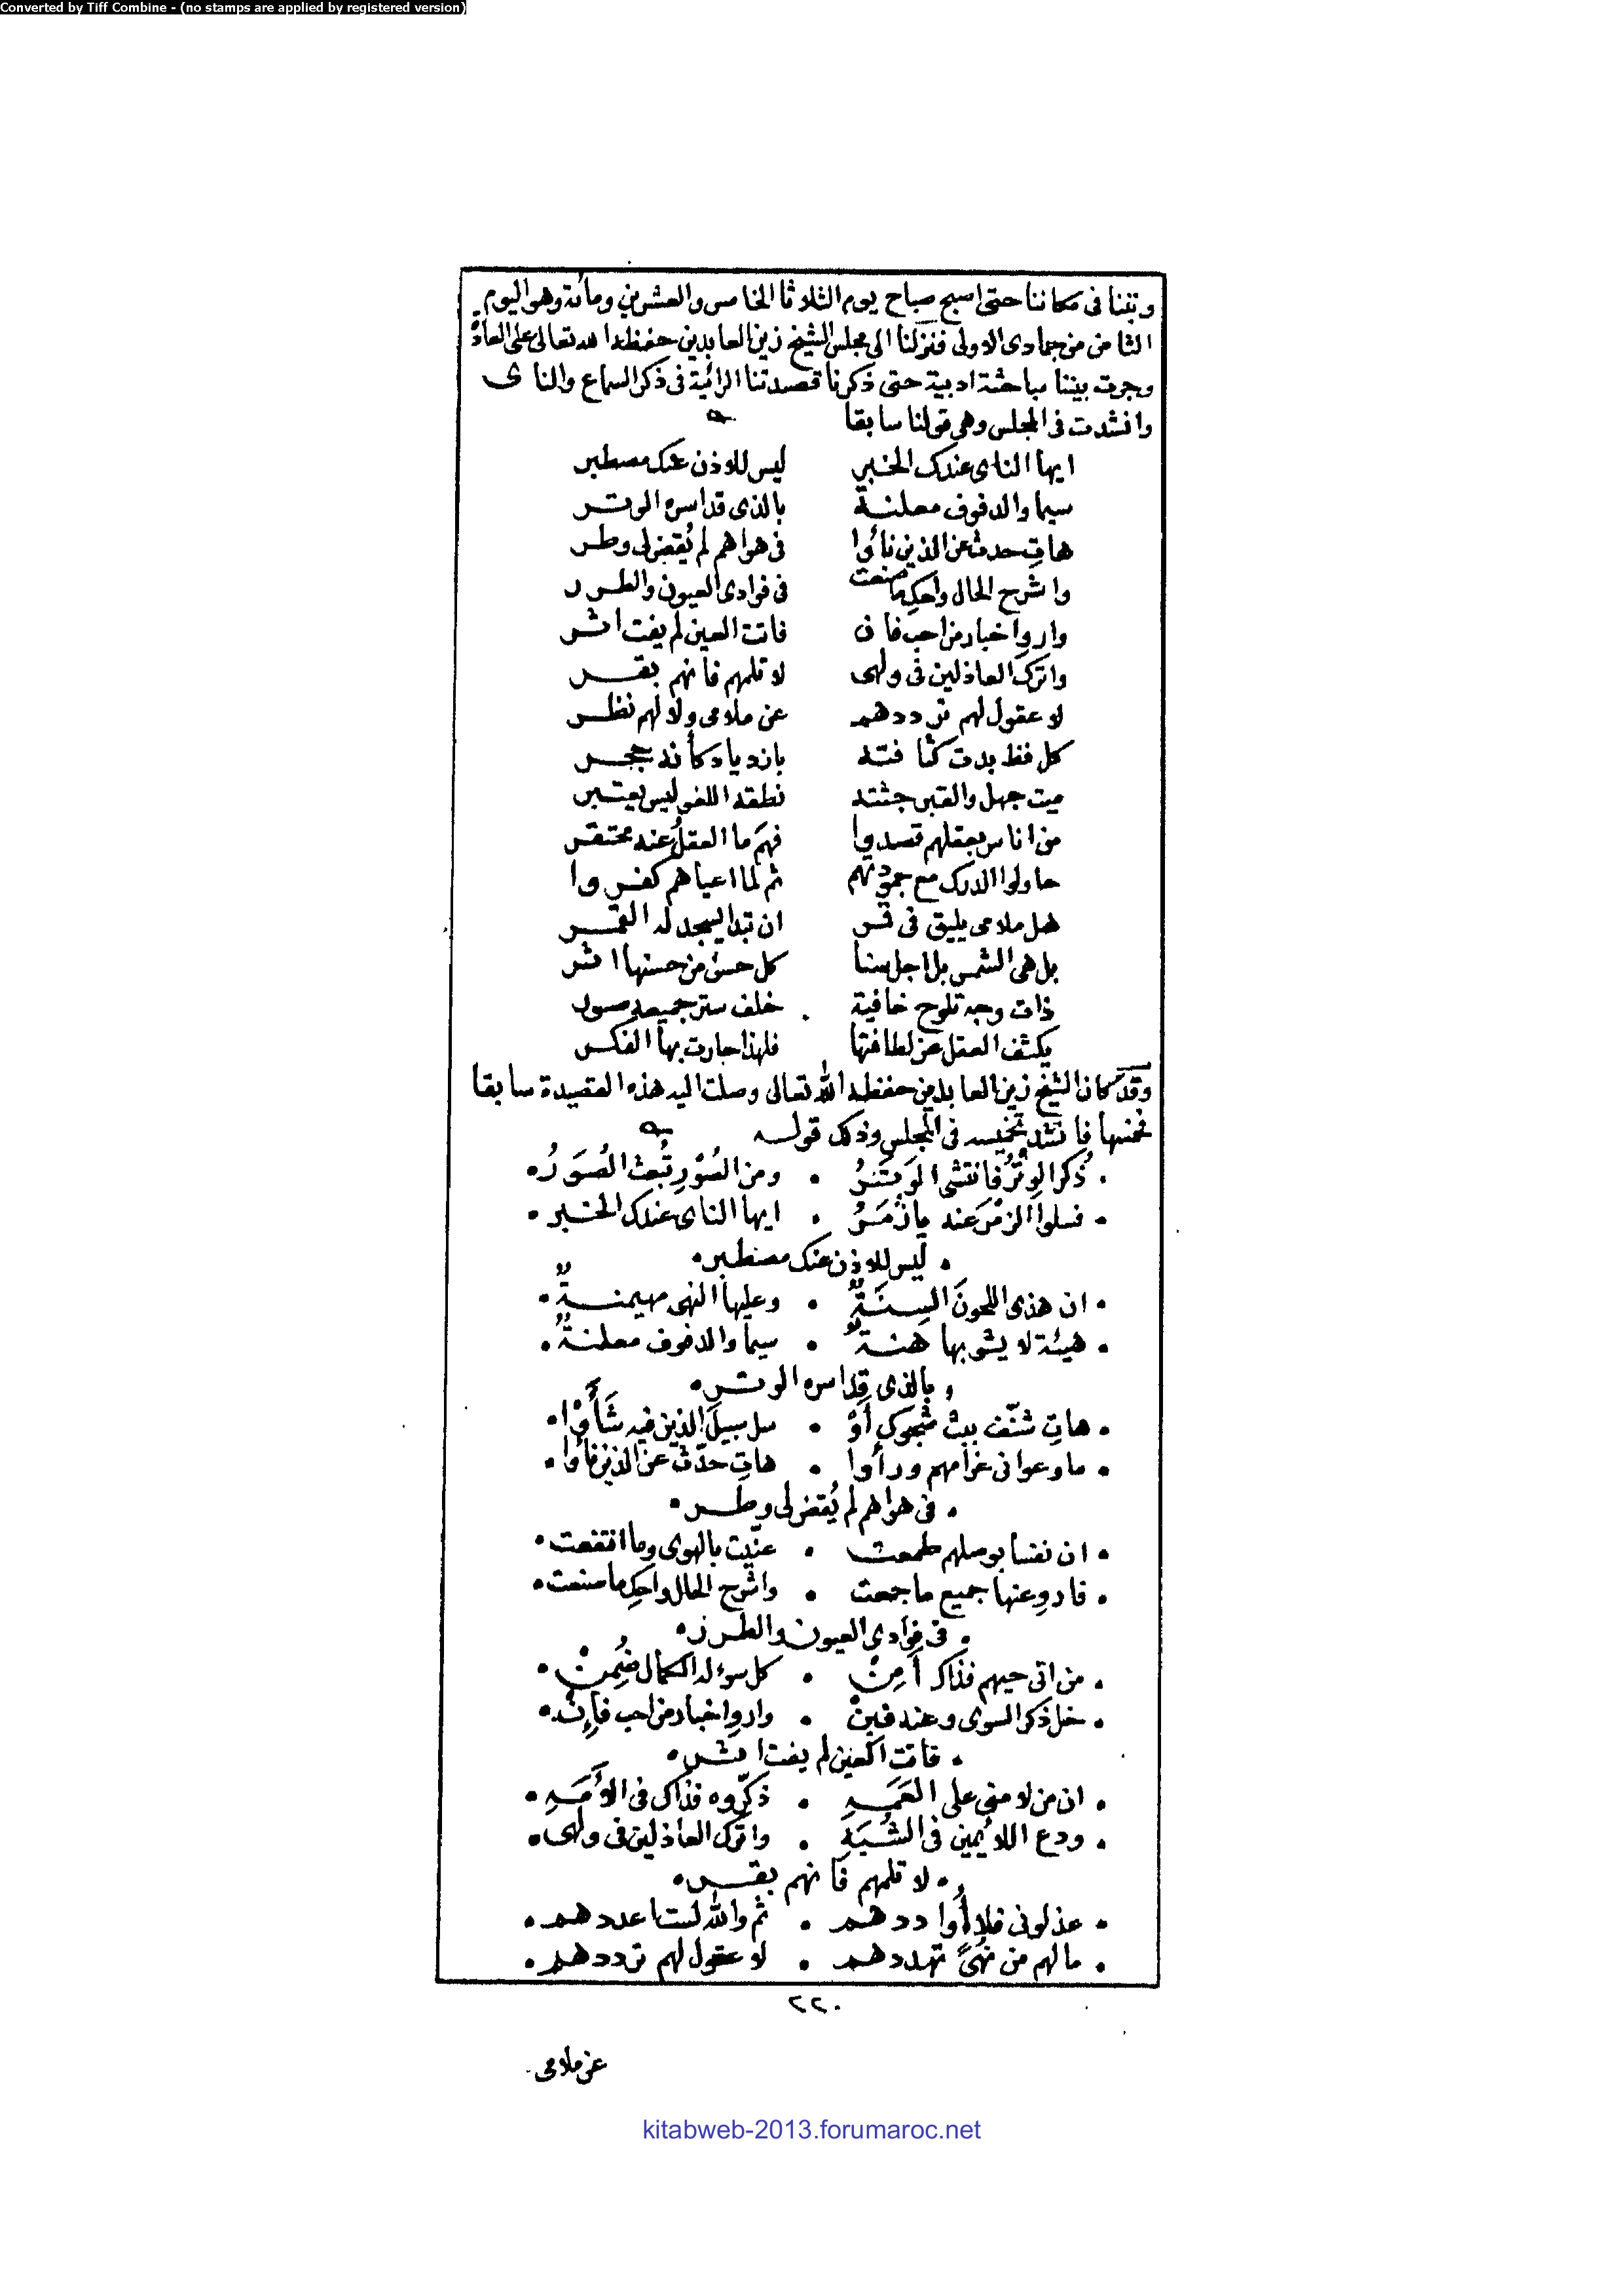 Converted by Tiff Combine - (no stamps are applied by registered version)
وبتنا فى مكاننا حتى اصبح صباح يوم الثلاثا الخامس والعشرين ومائة وهو اليوم
الثامن من جمادى الاولى فنزلنا الى مجلس الشيخ زين العابدين حفظه الله تعالى على العادة
وجرت بيننا مباحثة ادبية حتى ذكرنا قصدتنا الرائية فى ذكر السماع والناى
وانشدت فى المجلس وهى قولنا سابقا
ايها الناى عندك الخبر ليس للاذن عنك مصطبر
سيما والدفوف معلنة بالذى قد اسره الوتر
هاتِ حدث عن الذين نأوا فى هواهم لم يُقض لى وطر
واشرح الحال واحكِ ما صنعت فى فوادى العيون والطرر
واروِ اخبار من احب فان فاتت العين لم يفت اثر
واترك العاذلين فى ولهى لا تلمهم فانهم بقر
لا عقول لهم ترددهم عن ملامى ولا لهم نظر
كل فظ بدت كثافته بازدياد كأنه حجر
ميت جهل والقبر جثته نطقه اللغو ليس يعتبر
من اناس بعقلهم قصدوا فهم ما العقل عنه محتقر
حاولوا الدرك مع جمودتهم ثم لما اعياهم كفروا
هل ملامى يليق فى قمر ان تبدا يسجد له القمر
بل هى الشمس بل اجل سنا كل حسن من حسنها اثر
ذات وجه تلوح خافية خلف ستر جميعه صور
يكثف العقل عن لطافتها فلهذا حارت بها الفكر
وقد كان الشيخ زين العابدين حفظه الله تعالى وصلت اليه هذه القصيدة سابقا
فخمسها فانشد تخميسه فى المجلس وذلك قوله
ذُكر الوِتْرُ فانتشى الوَتَرُ • ومن الصُوْرِ تُبعث الصُوَرُ
• فسلوا الزمْرَ عنه يا زُمَرُ • ايها الناى عندك الخبر •
• ليس للاذن عنك مصطبر •
• ان هذى اللحونَ السِنَةٌ • وعليها النهى مهيمنةٌ •
• هيئة لا يشوبها هَنةٌ • سيما والدفوف معلنةٌ •
• بالذى قد اسره الوتر •
• هاتِ شنّف ببث شجوك أوْ • سل سبيلَ الذين فيه شَأَوْا •
• ما وعوا فى غرامهم ورأوا • هاتِ حدّث عن الذين نأوا •
• فى هواهم لم يُقض لى وطر •
• ان نفسا بوصلهم طمعت • عنّيت بالهوى وما انتفعت •
• فاروِ عنها جميع ما جمعت • واشرح الحال واحكِ ما صنعت •
• فى فوادى العيون والطرر •
• من اتى حيهم فذاك أَمِنْ • كل سوء له الكمال ضُمِنْ •
• خل ذكر السوى وعنه فَبِنْ • واروِ اخبار من احب فإنْ •
• فاتت العين لم يفت اثر •
• ان من لامنى على العَمَهِ • ذكّروه فذاك فى الأَمَهِ •
• ودع اللائمين فى الشُبَهِ • واترك العاذلين فى ولهى •
• لا تلمهم فانهم بقر •
• عذلونى فلا أُواددهم • ثم والله لست اعددهم •
• ما لهم من نُهىً تهددهم • لا عقول لهم ترددهم •
٢٢٠
عن ملامى
kitabweb-2013.forumaroc.net